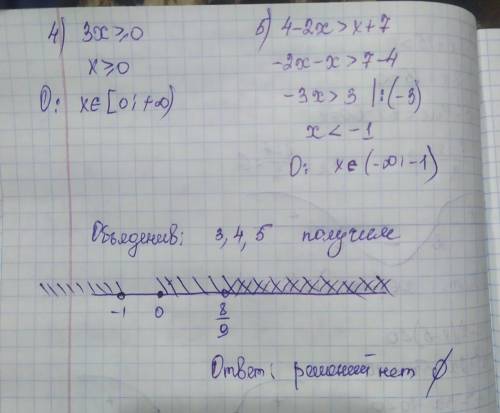 4) 3x ≥ 0
x ≥ 0
О: x ∈ [0; +∞)
5) 4-2x > x+7
-2x-x > 7-4
-3x > 3 |:(-3)
x < -1
О: x ∈ (-∞; -1)
Объеденив; 3, 4, 5 получим
-1 0 8/9
Ответ: решений нет ∅